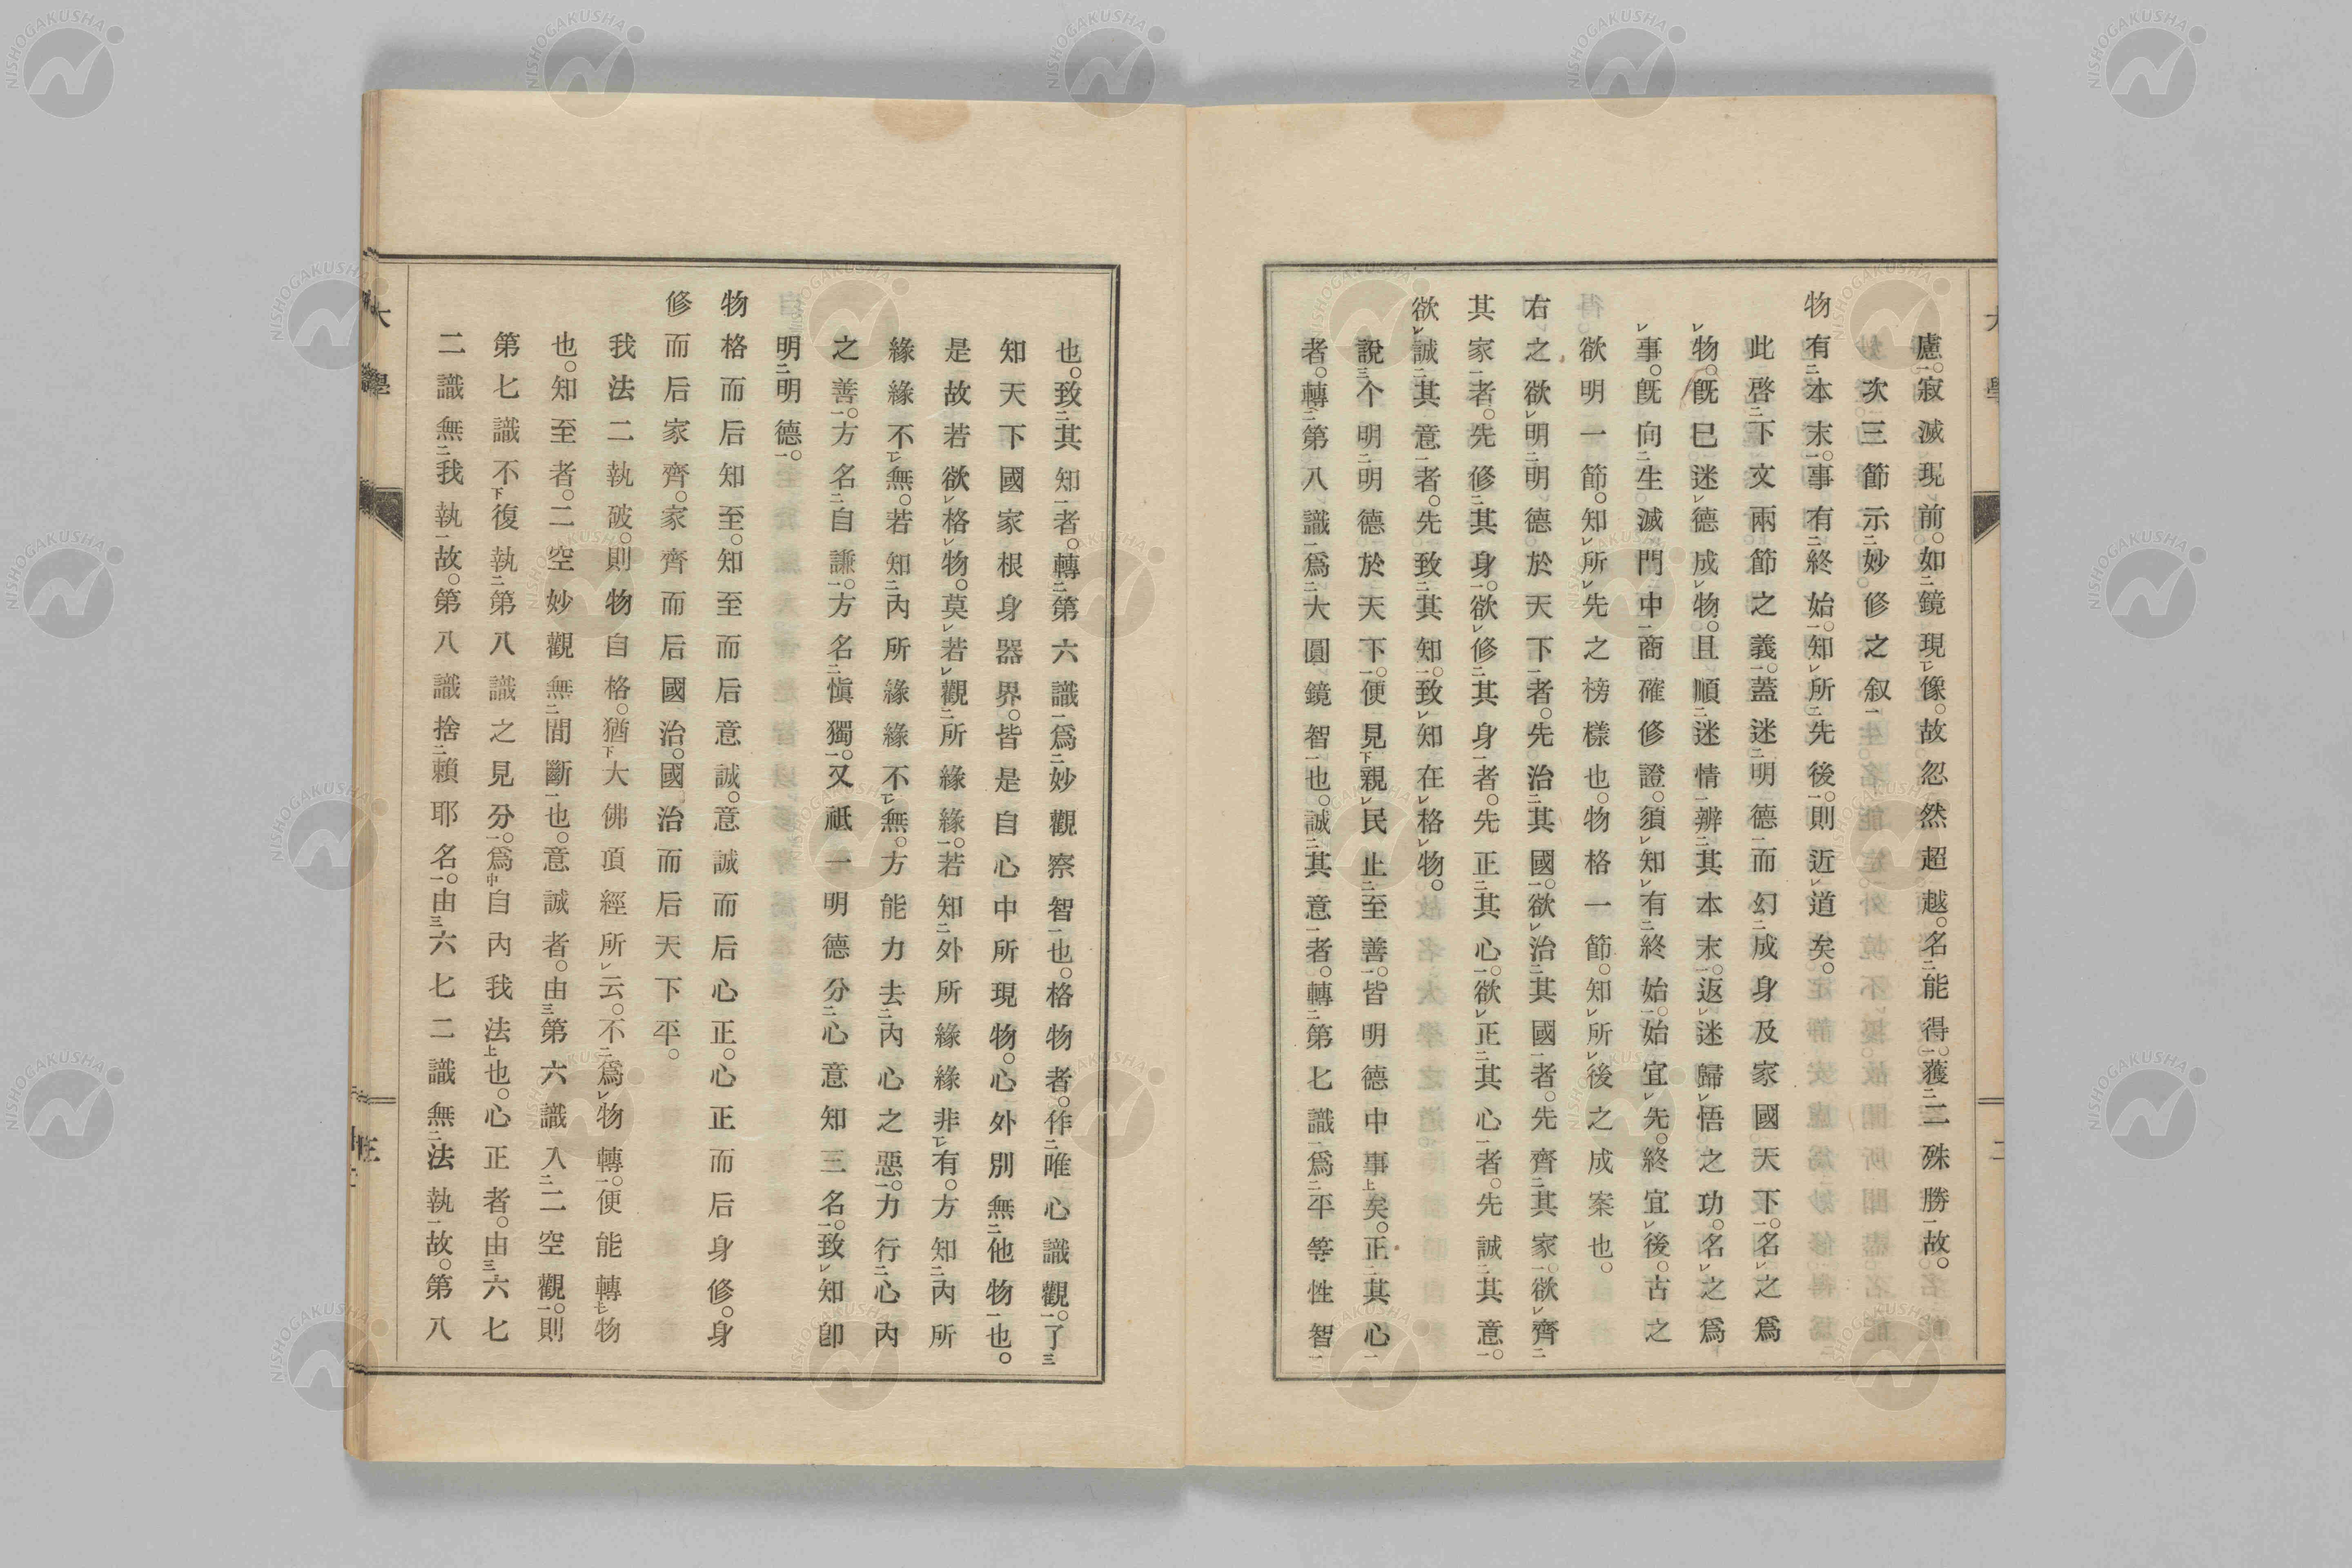 慮。寂滅現前。如鏡現像。故忽然超越。名能得。獲二殊勝故。
次三節示妙修之叙
物有本末。事有終始。知所先後。則近道矣。
此啓下文兩節之義。蓋迷明德而幻成身及家國天下。名之爲
物。既已迷德成物。且順迷情辨其本末。返迷歸悟之功。名之爲
事。既向生滅門中商確修證。須知有終始。始宜先。終宜後。古之
欲明一節。知所先之榜樣也。物格一節。知所後之成案也。
右之欲明明德於天下者。先治其國。欲治其國者。先齊其家。欲齊
其家者。先修其身。欲修其身者。先正其心。欲正其心者。先誠其意。
欲誠其意者。先致其知。致知在格物。
說个明明德於天下。便見親民止至善。皆明德中事矣。正其心
者。轉第八識爲大圓鏡智也。誠其意者。轉第七識爲平等性智
也。致其知者。轉第六識爲妙觀察智也。格物者。作唯心識觀。了
知天下國家根身器界。皆是自心中所現物。心外別無他物也。
是故若欲格物。莫若觀所緣緣。若知外所緣緣非有。方知內所
緣緣不無。若知內所緣緣不無。方能力去內心之惡。力行心內
之善。方名自謙。方名愼獨。又祇一明德分心意知三名。致知卽
明明德。
物格而后知至。知至而后意誠。意誠而后心正。心正而后身修。身
修而后家齊。家齊而后國治。國治而后天下平。
我法二執破。則物自格。猶大佛頂經所云。不爲物轉。便能轉物
也。知至者。二空妙觀無間斷也。意誠者。由第六識入二空觀。則
第七識不復執第八識之見分。爲自內我法也。心正者。由六七
二識無我執故。第八識捨賴耶名。由六七二識無法執故。第八
大學